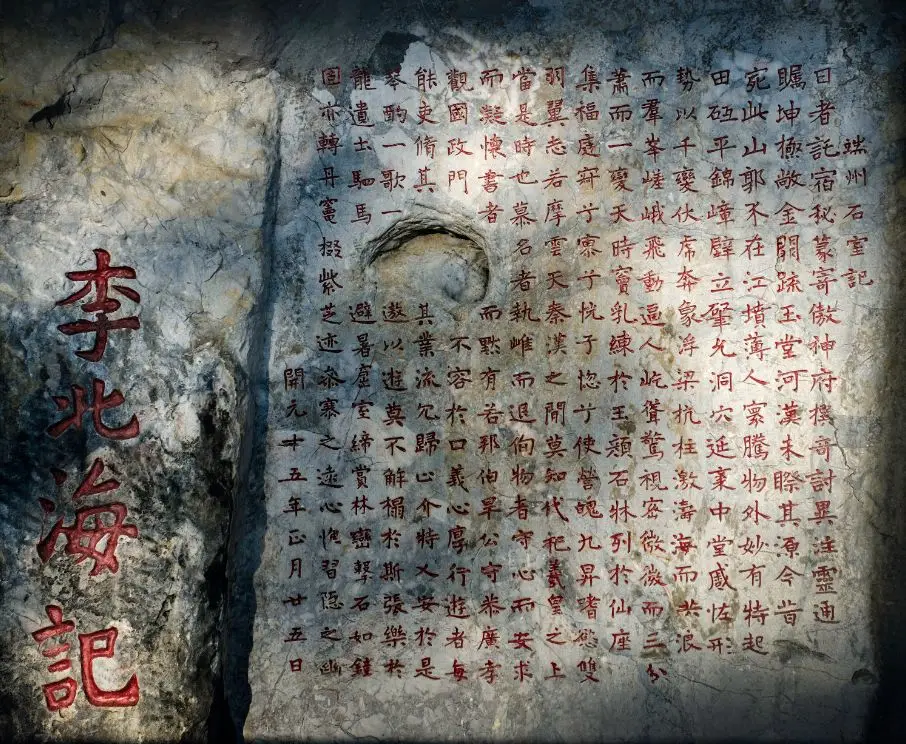 端州石室記
日者託宿秘篆寄傲神府樸哥討異注靈通
矚坤極敞金闕疏玉堂河漢未睽其源今昔
宛此山郭不在江墳薄人寰騰物外妙有特起
田砥平錦嶂壁立肇允洞穴延袤中堂感怪形
勢以千變伏虎奔象浮梁抗柱激海而洪浪
而羣峯嵯峨飛動逼人屹聳驚視密微微而三分
蕭而一變天時竇乳練於玉顏石牀列於仙座
集福庭窅兮寥兮恍兮惚兮使營魄九昇嗜慾雙
羽翼忽若摩雲天秦漢之閒莫知代祀羲皇之上
當是時也慕名者執雌而退徇物者守心而安求
而凝懷書者而黙有若邦伯畢公守恭廣孝
觀國政門不容於口義心厚行遊者每
能吏脩其其業流冗歸心介特乂安於是
岑酌一歌一遨以遊莫不解榻於斯張樂於
龍遺士駟馬避暑虛室締賞林巒鑿石如鍾
固亦轉丹竈掇紫芝迹參寥之遠心恍習隱之幽
開元十五年正月廿五日
李北海記